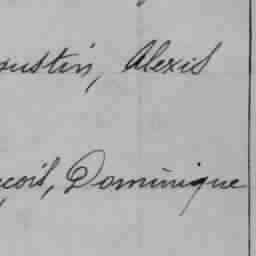 oustin, Alexis
çois, Dominique